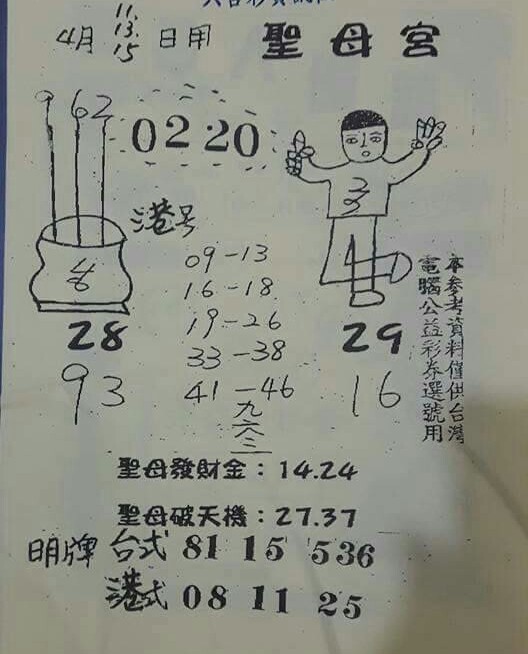 4月 11. 13. 15 日用 聖母宮
9 62
02 20
港号
09-13
16-18
19-26
33-38
41-46
九六三
28
93
29
16
本參考資料僅供台灣
電腦公益彩券選號用
聖母發財金：14.24
聖母破天機：27.37
明牌 台式 81 15 536
港式 08 11 25